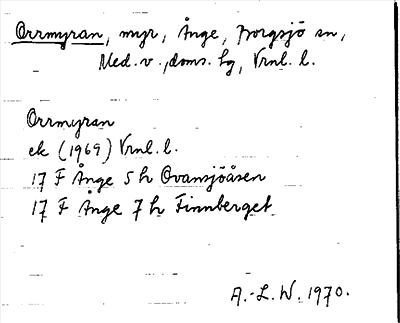 Orrmyran, myr, Ånge, Borgsjö sn,
Med. v., doms. hg, Vrnl. l.
Orrmyran
ek (1969) Vrnl. l.
17 F Ånge 5 h Ovansjöåsen
17 F Ånge 7 h Finnberget
A.-L. W. 1970.